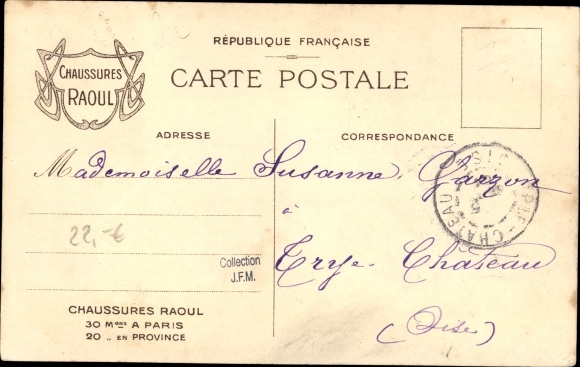 RÉPUBLIQUE FRANÇAISE
CHAUSSURES
RAOUL
CARTE POSTALE
ADRESSE
CORRESPONDANCE
Mademoiselle Susanne Garzon
à
22,-€
Trye-Chateau
(Oise)
Collection
J.F.M.
CHAUSSURES RAOUL
30 Mons A PARIS
20 „ EN PROVINCE
TRIE-CHATEAU
OISE